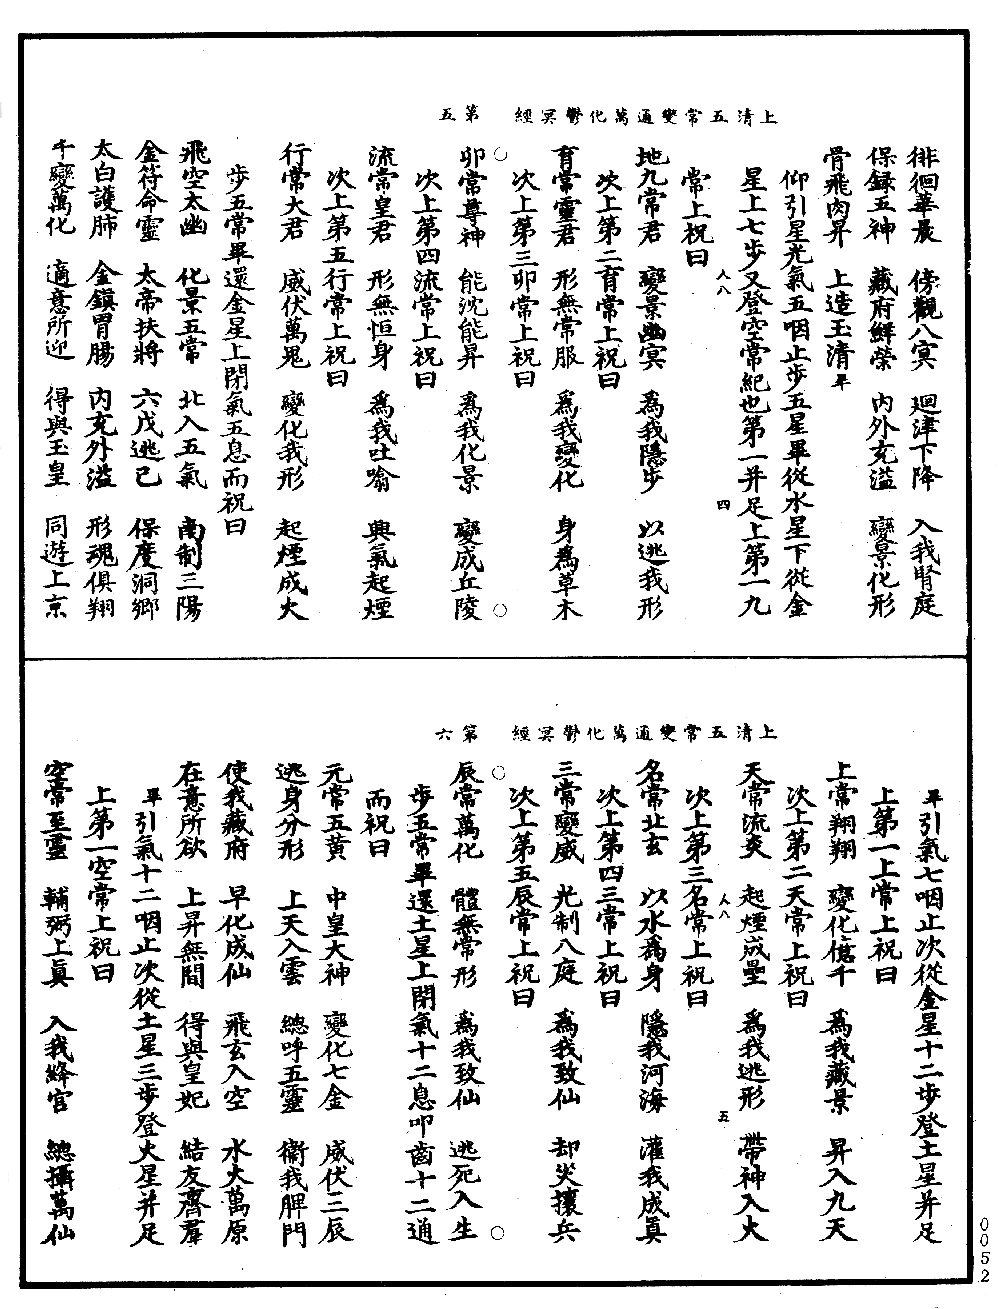 上清五常變通萬化鬱冥經　第五
徘徊華晨　傍觀八冥　迴津下降　入我腎庭
保録五神　藏府鮮榮　內外充溢　變景化形
骨飛肉昇　上造玉清畢
仰引星光氣五咽止步五星畢從水星下從金
星上七步又登空常紀也第一并足上第一九
常上祝曰
八八
四
地九常君　變景幽冥　為我隱步　以逃我形
次上第二育常上祝曰
育常靈君　形無常服　為我變化　身為草木
次上第三卯常上祝曰
卯常尊神　能沈能昇　為我化景　變成丘陵
次上第四流常上祝曰
流常皇君　形無恒身　為我吐喻　興氣起煙
次上第五行常上祝曰
行常大君　威伏萬鬼　變化我形　起煙成火
步五常畢還金星上閉氣五息而祝曰
飛空太幽　化景五常　北入五氣　南制三陽
金符命靈　太帝扶將　六戊逃已　保度洞鄉
太白護肺　金鎮胃腸　內充外溢　形魂俱翔
千變萬化　適意所迎　得與玉皇　同遊上京
上清五常變通萬化鬱冥經　第六
畢引氣七咽止次從金星十二步登土星并足
上第一上常上祝曰
上常翔翔　變化億千　為我藏景　昇入九天
次上第二天常上祝曰
天常流炎　起煙成壘　為我逃形　帶神入火
次上第三名常上祝曰
人八
五
名常北玄　以水為身　隱我河海　灌我成真
次上第四三常上祝曰
三常變威　光制八庭　為我致仙　却災攘兵
次上第五辰常上祝曰
辰常萬化　體無常形　為我致仙　逃死入生
步五常畢還土星上閉氣十二息叩齒十二通
而祝曰
元常五黃　中皇大神　變化七金　威伏三辰
逃身分形　上天入雲　總呼五靈　衞我脾門
使我藏府　早化成仙　飛玄入空　水火萬原
在意所欲　上昇無間　得與皇妃　結友齊羣
畢引氣十二咽止次從土星三步登火星并足
上第一空常上祝曰
空常至靈　輔弼上真　入我絳宮　總攝萬仙
0052